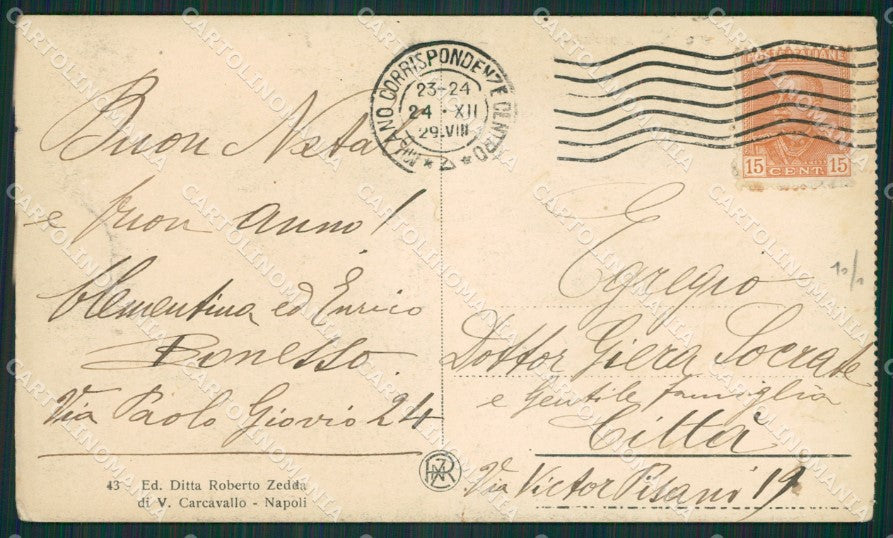 Buon Nata
e buon anno!
Clementina ed Enrico
Bonesso.
Via Paolo Giovio 24
43 Ed. Ditta Roberto Zedda
di V. Carcavallo - Napoli
MILANO CORRISPONDENZE CENTRO
23-24
24 · XII
29.VIII
15 15
CENT.
10/1
Egregio
Dottor Giera Socrate
e gentile famiglia
Città
Via Victor Pisani 19
CARTOLINOMANIA